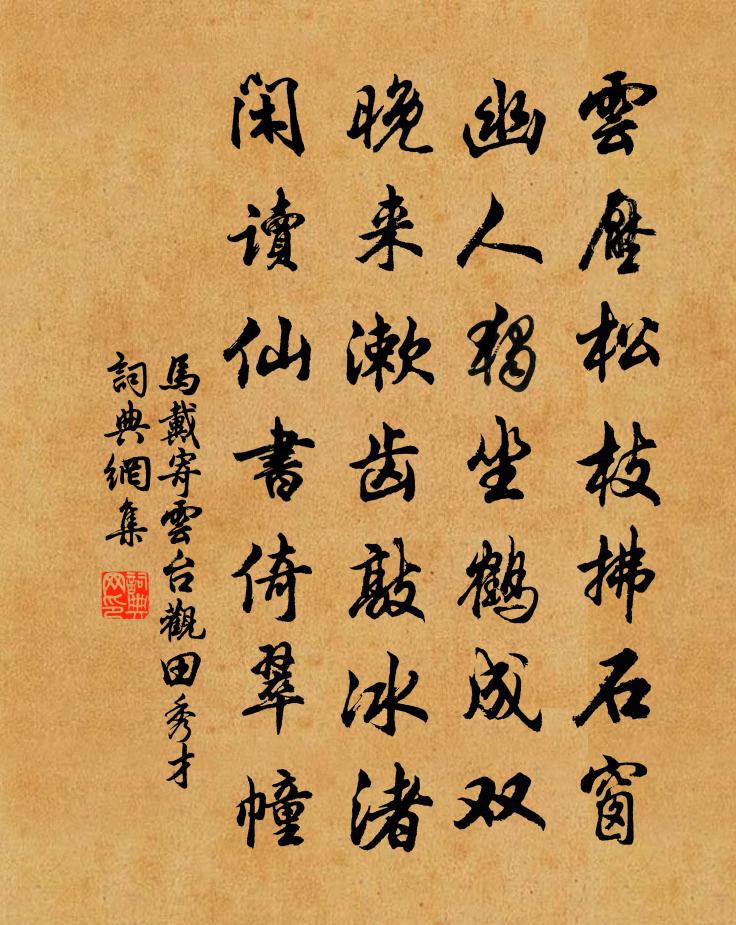 雲壓松枝拂石窗
幽人獨坐鶴成双
晚来漱齿敲冰渚
闲读仙書倚翠幢
馬戴寄雲台觀田秀才
詞典網集
詞典
网印